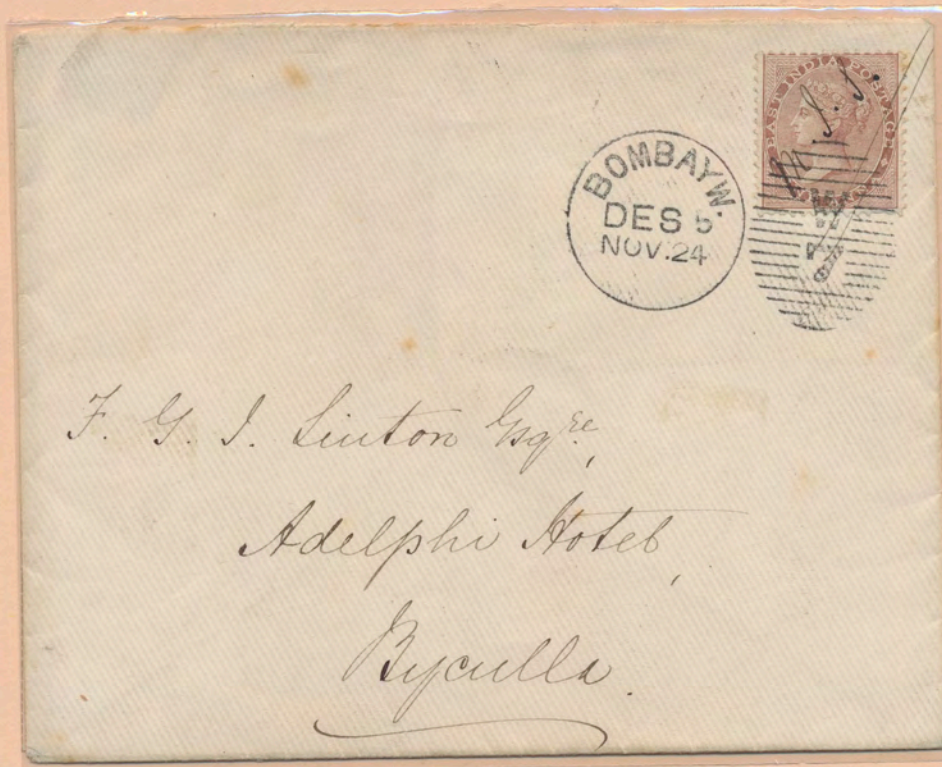 EAST INDIA POSTAGE
BOMBAY W.
DES 5
NOV. 24
W
F. G. I. Linton Esqre,
Adelphi Hotel,
Byculla.